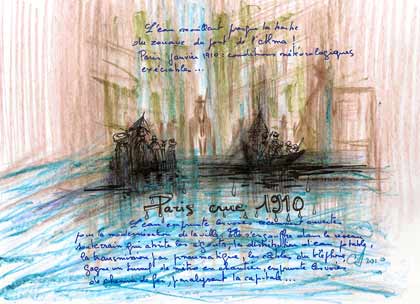 L'eau montait jusqu'à la barbe
du zouave du pont de l'Alma !
Paris janvier 1910 : conditions météorologiques
exécrables ...
Paris crue 1910
L'eau emprunte les voies ouvertes
pour la modernisation de la ville. Elle s'engouffre dans le réseau
souterrain qui abrite les égouts, la distribution d'eau potable,
la transmission par pneumatique, les câbles du téléphone,
gagne un tunnel de métro en chantier, emprunte les voies
de chemin de fer, paralysant la capitale ...
2010